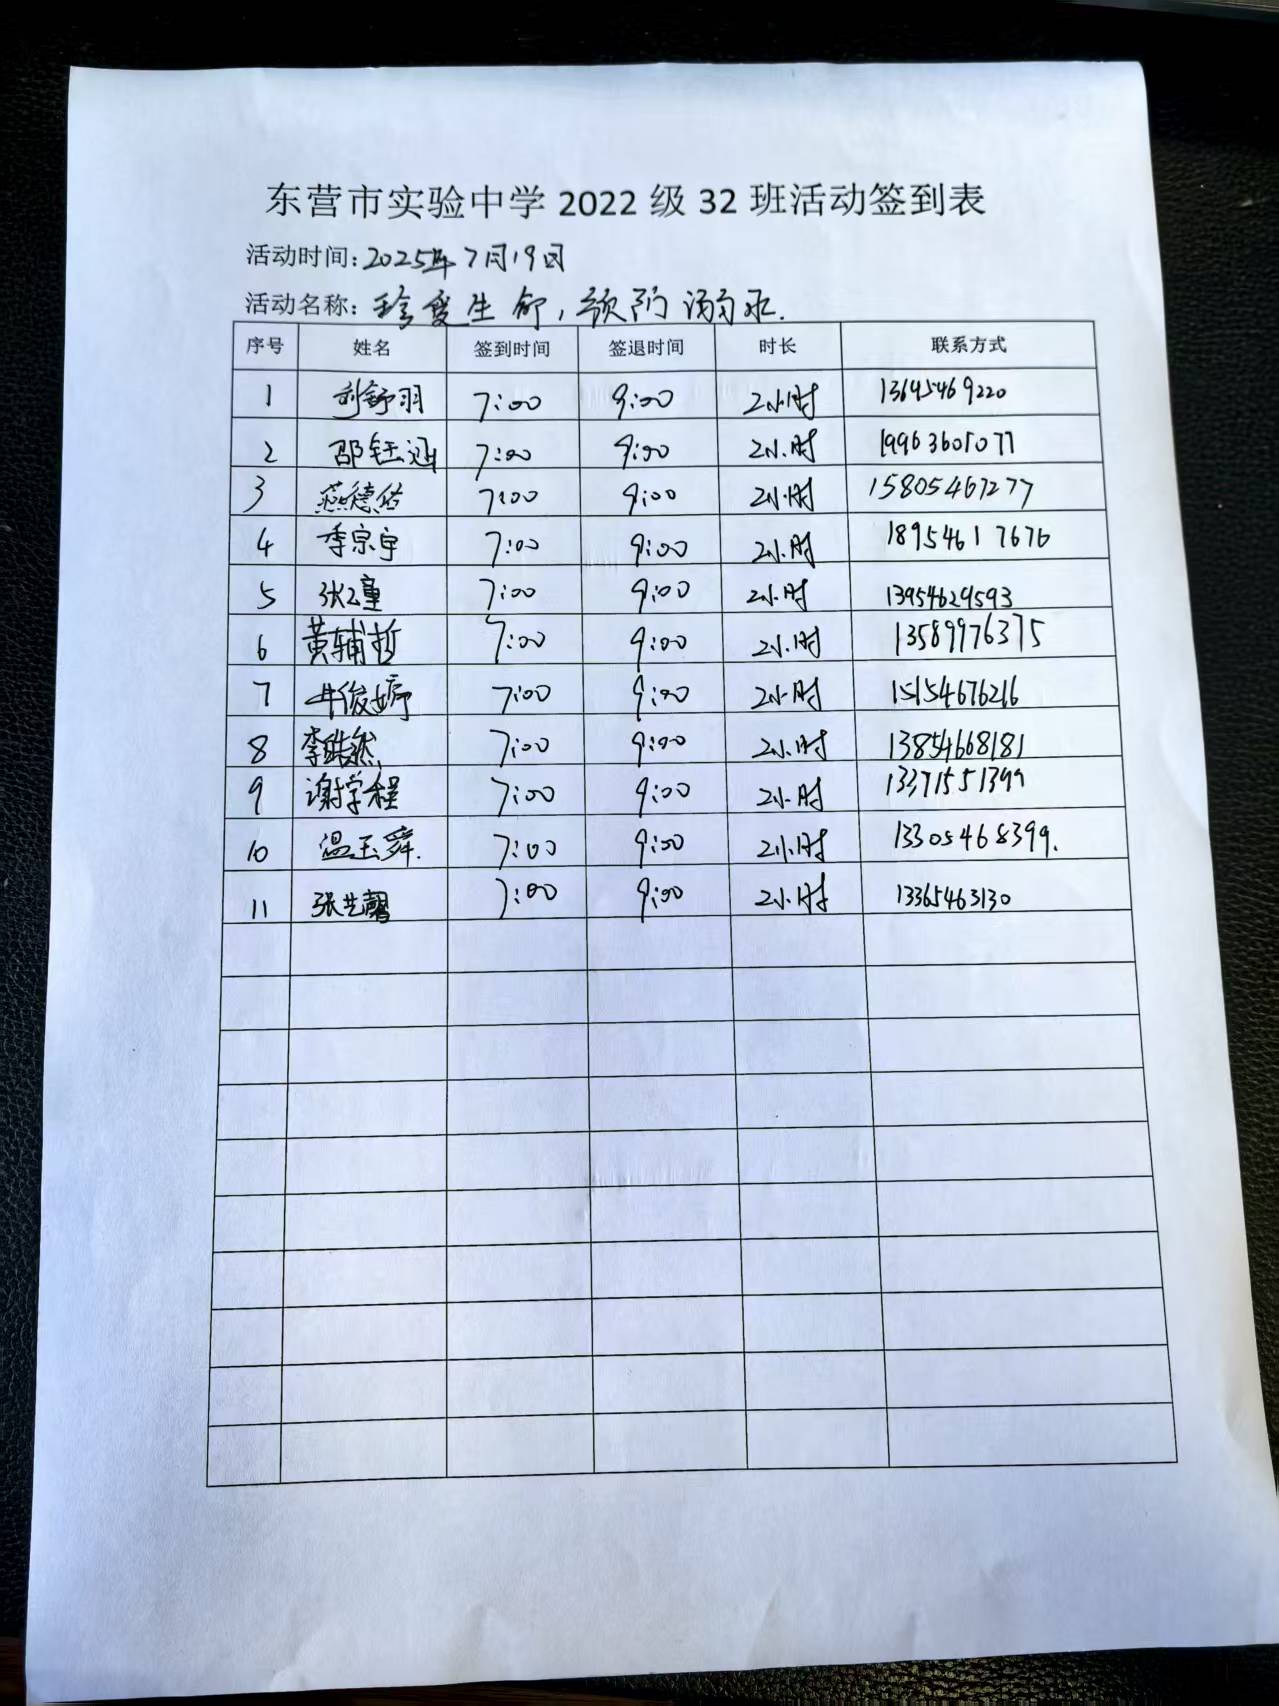 东营市实验中学 2022 级 32 班活动签到表
活动时间:2025年7月19日
活动名称: 珍爱生命,预防溺水.
序号 姓名 签到时间 签退时间 时长 联系方式
1 刘舒羽 7:00 9:00 2小时 13645469220
2 邵钰涵 7:00 9:00 2小时 19963601077
3 燕德佑 7:00 9:00 2小时 15805467277
4 李宗宇 7:00 9:00 2小时 18954617676
5 7:00 9:00 2小时 13954629593
6 黄辅哲 7:00 9:00 2小时 13589976375
7 牛俊婷 7:00 9:00 2小时 15154676216
8 李皓然 7:00 9:00 2小时 13854668181
9 谢学程 7:00 9:00 2小时 13371551399
10 温玉舜. 7:00 9:00 2小时 13305468399.
11 张艺馨 7:00 9:00 2小时 13365463130